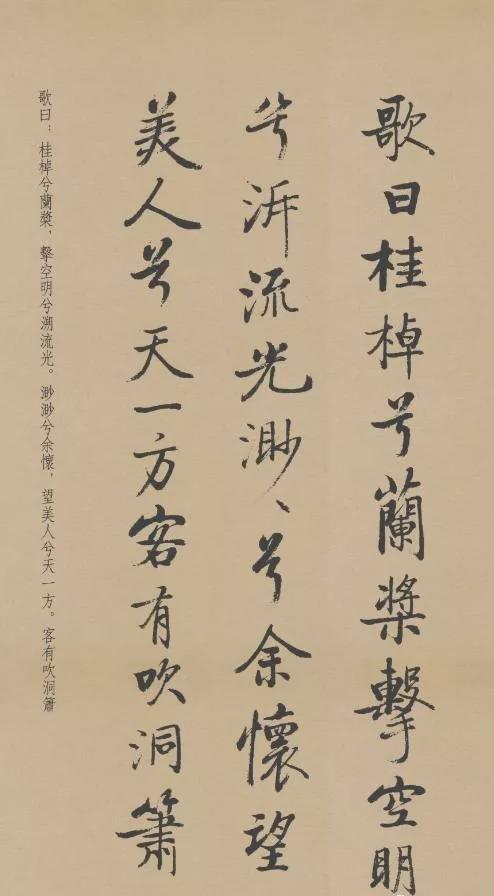 歌曰桂棹兮蘭槳擊空明
兮泝流光渺、兮余懷望
美人兮天一方客有吹洞簫
歌曰：桂棹兮蘭槳，擊空明兮溯流光。渺渺兮余懷，望美人兮天一方。客有吹洞簫